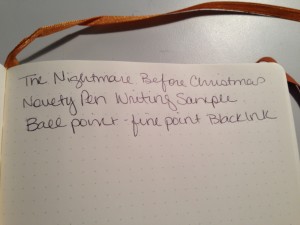 The Nightmare Before Christmas
Novety Pen Writing Sample.
Ball point - fine point Black Ink